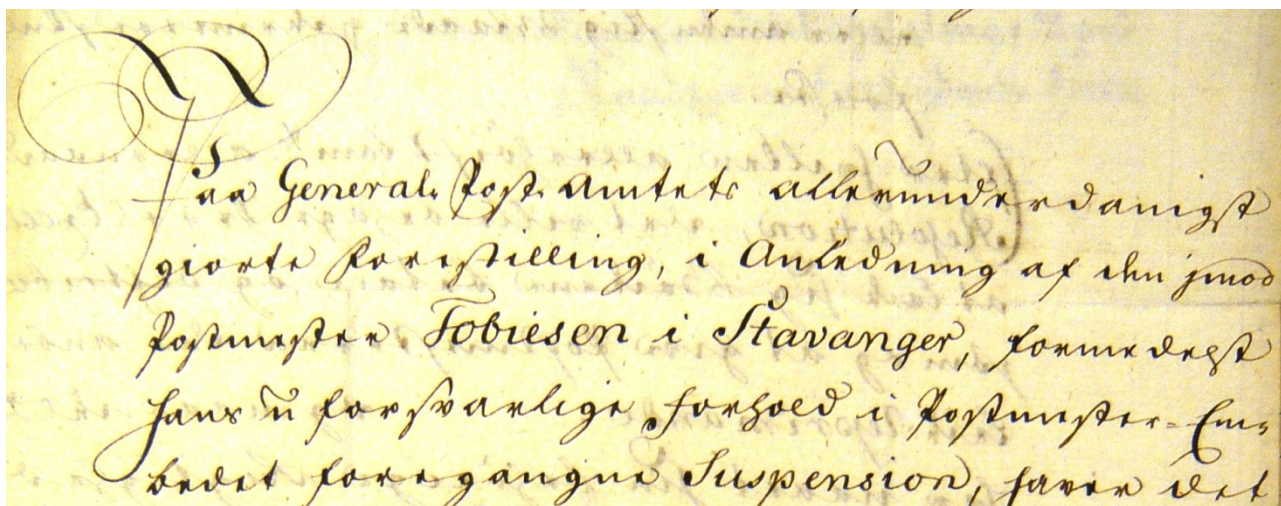 Paa General-Post-Amtets allerunderdanigst
giorte Forestilling, i Anledning af den jmod
Postmester Tobiesen i Stavanger, formedelst
hans uforsvarlige Forhold i Postmester-Em-
bedet foregangne Suspension, haver det